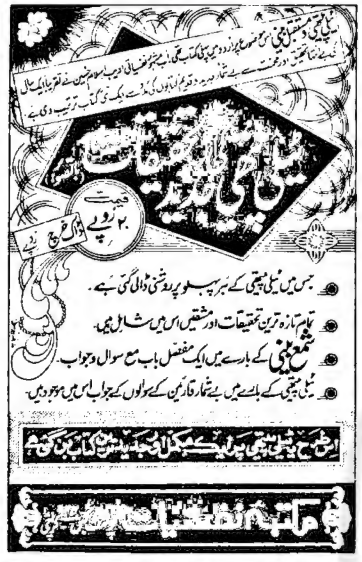 ٹیلی پیتھی و مستقبل بینی اس موضوع پر اردو میں پہلی کتاب تھی، اپنے نفسیاتی ادیب اسلام حسین نے تقریباً ایک سال
کی بے انتہا تحقیق اور محنت سے بے شمار جدید و قدیم کتابوں کی مدد سے ایک نئی کتاب ترتیب دی ہے
ٹیلی پیتھی جدید تحقیقات
قیمت
۲۰ روپے
ڈاک خرچ روپے
جس میں ٹیلی پیتھی کے ہر پہلو پر روشنی ڈالی گئی ہے۔
تمام تازہ ترین تحقیقات اور مشقیں اس میں شامل ہیں۔
شمع بینی کے بارے میں ایک مفصل باب مع سوال و جواب۔
ٹیلی پیتھی کے بارے میں بے شمار قارئین کے سوالوں کے جواب اس میں موجود ہیں۔
اس طرح یہ ٹیلی پیتھی پر ایک مکمل اور جدید ترین کتاب بن گئی ہے
مکتبہ نفسیات